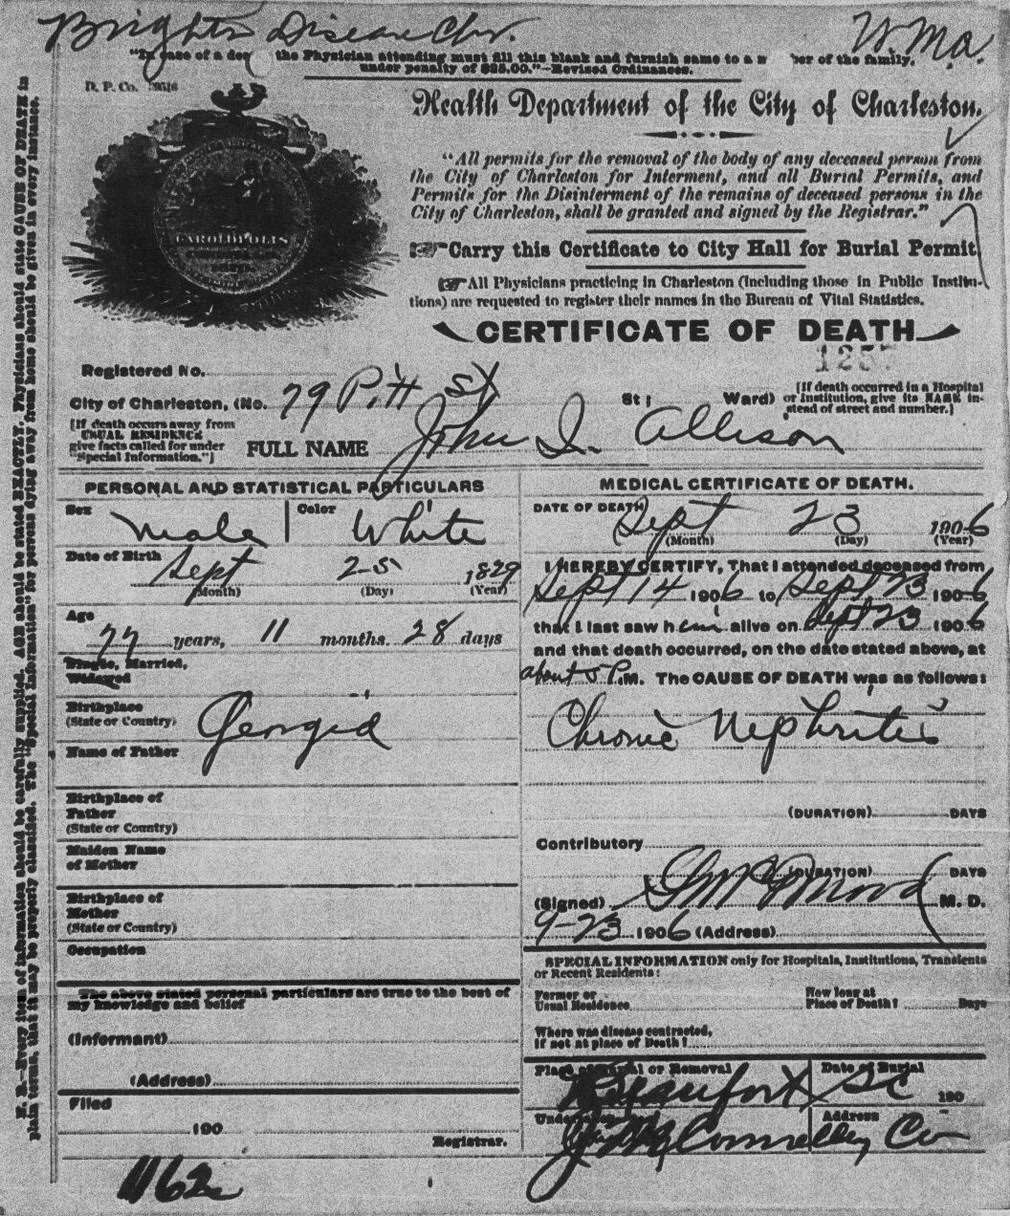 Brights Disease Chr. W. Ma.
"In case of a the Physician attending must fill this blank and furnish same to a of the family,
under penalty of $25.00."—Revised Ordinances.
D. P. Co.
CAROLOPOLIS
Health Department of the City of Charleston.
"All permits for the removal of the body of any deceased person from
the City of Charleston for Interment, and all Burial Permits, and
Permits for the Disinterment of the remains of deceased persons in the
City of Charleston, shall be granted and signed by the Registrar."
Carry this Certificate to City Hall for Burial Permit
All Physicians practicing in Charleston (including those in Public Institu-
tions) are requested to register their names in the Bureau of Vital Statistics.
CERTIFICATE OF DEATH
1257
Registered No.
City of Charleston, (No. 79 Pitt St St; Ward)
[If death occurred in a Hospital
or Institution, give its NAME in-
stead of street and number.]
[If death occurs away from
USUAL RESIDENCE
give facts called for under
"Special Information."]
FULL NAME John I. Allison
PERSONAL AND STATISTICAL PARTICULARS
Sex male Color White
Date of Birth Sept 25 1829
(Month) (Day) (Year)
Age
77 years, 11 months. 28 days
Single, Married,
Widowed
Birthplace
(State or Country) Georgia
Name of Father
Birthplace of
Father
(State or Country)
Maiden Name
of Mother
Birthplace of
Mother
(State or Country)
Occupation
The above stated personal particulars are true to the best of
my knowledge and belief
(Informant)
(Address)
Filed
190
Registrar.
1162
MEDICAL CERTIFICATE OF DEATH.
DATE OF DEATH Sept 23 1906
(Month) (Day) (Year)
I HEREBY CERTIFY, That I attended deceased from
Sept 14 1906 to Sept 23 1906
that I last saw him alive on Sept 23 1906
and that death occurred, on the date stated above, at
about 5 P.M. The CAUSE OF DEATH was as follows:
Chronic Nephritis
(DURATION) DAYS
Contributory
(DURATION) DAYS
(Signed) M. D.
9-23 1906 (Address)
SPECIAL INFORMATION only for Hospitals, Institutions, Transients
or Recent Residents:
Former or
Usual Residence
How long at
Place of Death? Days
Where was disease contracted,
if not at place of Death?
Place of Burial or Removal Date of Burial
Beaufort SC 190
Address
J M Connelley Co
N. B.—Every item of information should be carefully supplied. AGE should be stated EXACTLY. Physicians should state CAUSE OF DEATH in
plain terms, that it may be properly classified. The "Special Information" for persons dying away from home should be given in every instance.